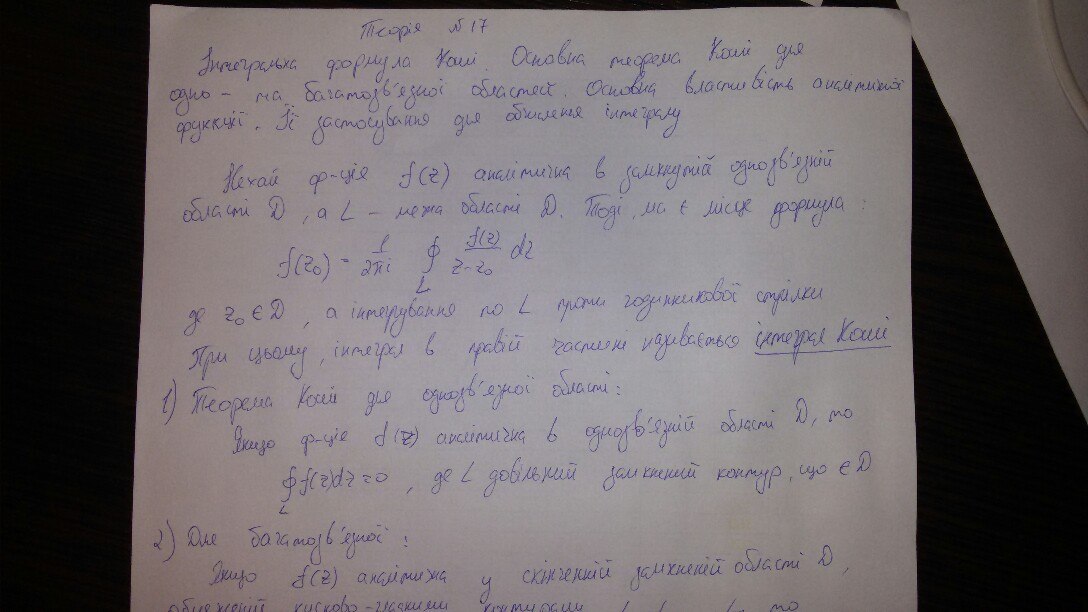 Теорія №17
Інтегральна формула Коші. Основна теорема Коші для
одно - та багатозв'язної областей. Основна властивість аналітичної
функції. Її застосування для обчислення інтегралу
Нехай ф-ція f(z) аналітична в замкнутій однозв'язній
області D, а L - межа області D. Тоді, має місце формула:
f(z₀) = 1/2πi ∮_L f(z)/(z-z₀) dz
де z₀ ∈ D, а інтегрування по L проти годинникової стрілки
При цьому, інтеграл в правій частині називається інтеграл Коші
1) Теорема Коші для однозв'язної області:
Якщо ф-ція f(z) аналітична в однозв'язній області D, то
∮_L f(z)dz = 0, де L довільний замкнений контур, що ∈ D
2) Для багатозв'язної:
Якщо f(z) аналітична у скінченній замкненій області D,
обмеженій кусково-гладкими контурами